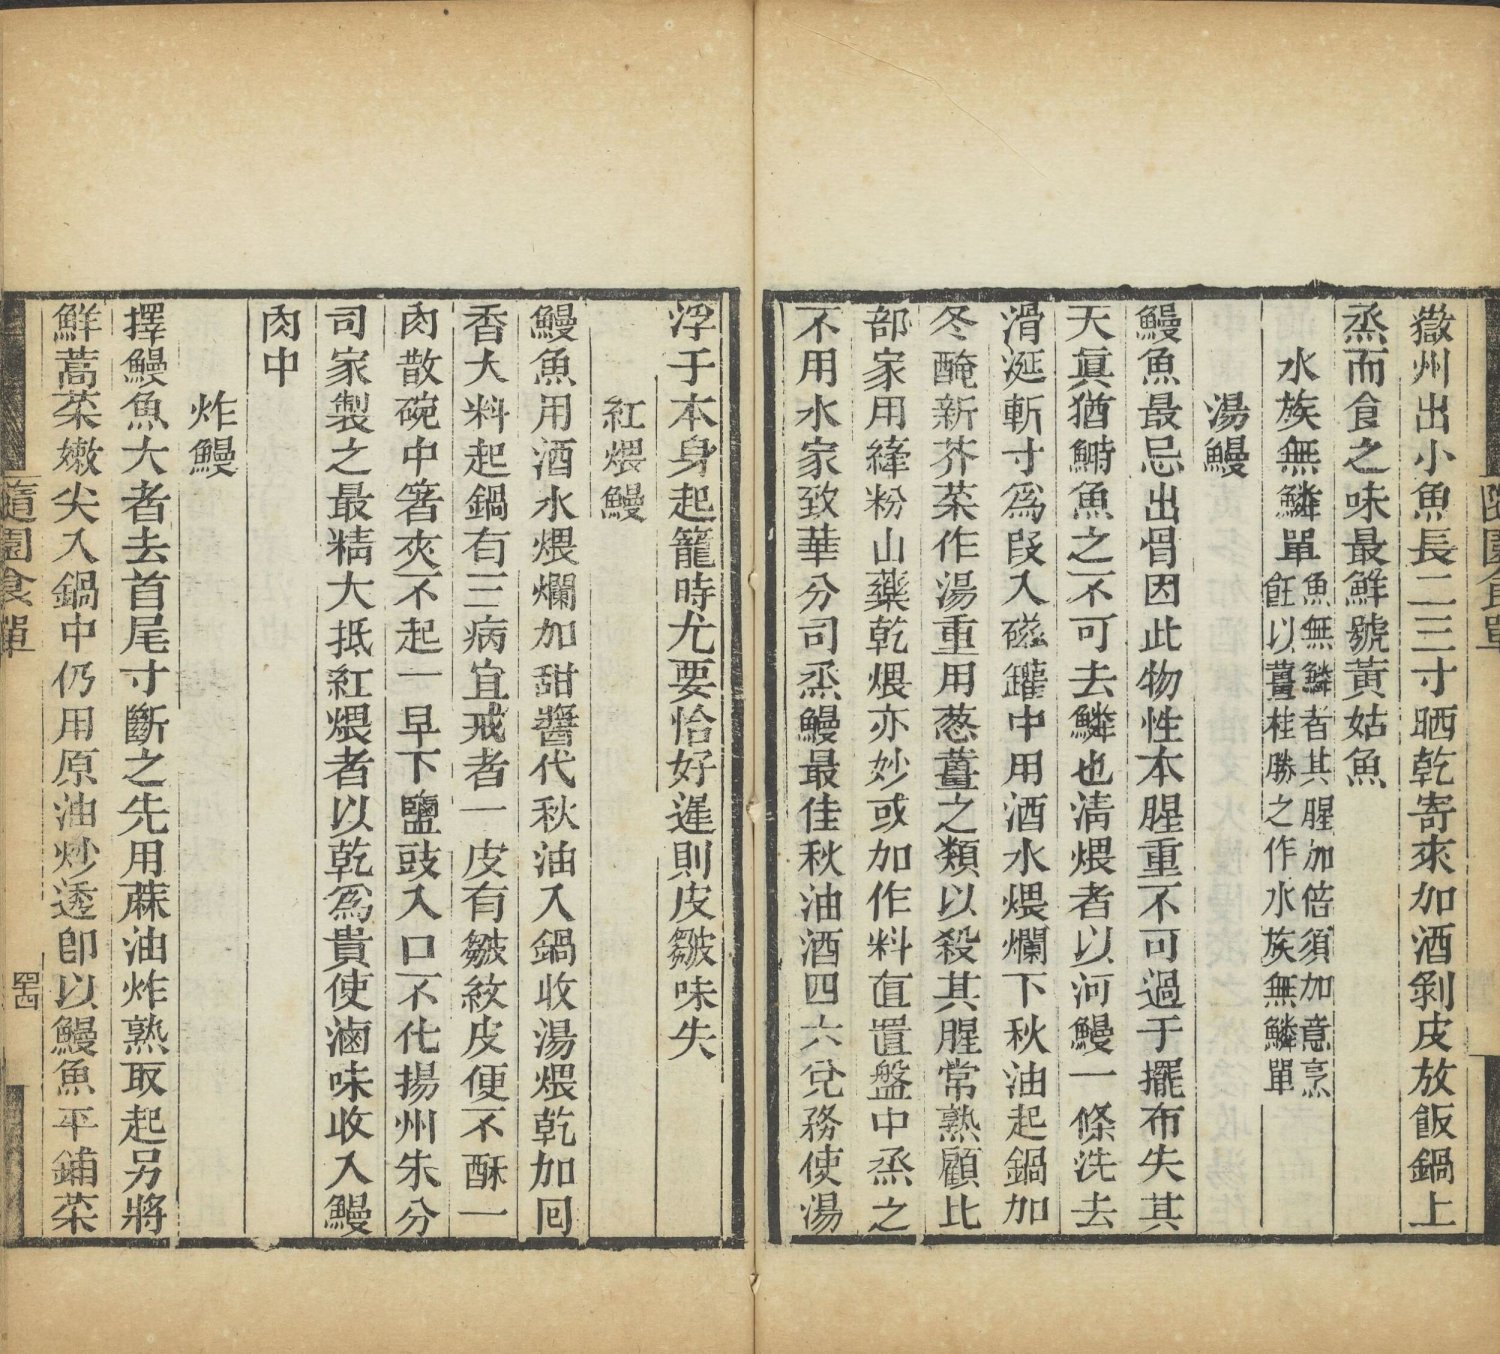 徽州出小魚長二三寸晒乾寄來加酒剝皮放飯鍋上
蒸而食之味最鮮號黃姑魚
水族無鱗單
魚無鱗者其腥加倍須加意烹
飪以薑桂勝之作水族無鱗單
湯鰻
鰻魚最忌出骨因此物性本腥重不可過于擺布失其
天眞猶鰣魚之不可去鱗也淸煨者以河鰻一條洗去
滑涎斬寸爲段入磁罐中用酒水煨爛下秋油起鍋加
冬醃新芥菜作湯重用葱薑之類以殺其腥常熟顧比
部家用縴粉山藥乾煨亦妙或加作料直置盤中蒸之
不用水家致華分司蒸鰻最佳秋油酒四六兌務使湯
浮于本身起籠時尤要恰好遲則皮皺味失
紅煨鰻
鰻魚用酒水煨爛加甜醬代秋油入鍋收湯煨乾加囘
香大料起鍋有三病宜戒者一皮有皺紋皮便不酥一
肉散碗中箸夾不起一早下鹽豉入口不化揚州朱分
司家製之最精大抵紅煨者以乾爲貴使滷味收入鰻
肉中
炸鰻
擇鰻魚大者去首尾寸斷之先用蔴油炸熟取起另將
鮮蒿菜嫩尖入鍋中仍用原油炒透卽以鰻魚平鋪菜
隨園食單